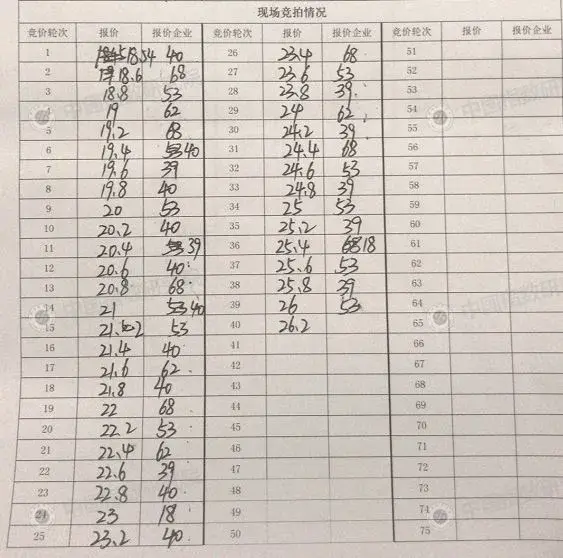 现场竞拍情况
竞价轮次 报价 报价企业 竞价轮次 报价 报价企业 竞价轮次 报价 报价企业
1 18.54 40 26 23.4 68 51
2 18.6 68 27 23.6 53 52
3 18.8 53 28 23.8 39 53
4 19 62 29 24 62 54
5 19.2 68 30 24.2 39 55
6 19.4 40 31 24.4 68 56
7 19.6 39 32 24.6 53 57
8 19.8 40 33 24.8 39 58
9 20 53 34 25 53 59
10 20.2 40 35 25.2 39 60
11 20.4 39 36 25.4 18 61
12 20.6 40 37 25.6 53 62
13 20.8 68 38 25.8 39 63
14 21 40 39 26 53 64
15 21.2 53 40 26.2 65
16 21.4 40 41 66
17 21.6 62 42 67
18 21.8 40 43 68
19 22 68 44 69
20 22.2 53 45 70
21 22.4 62 46 71
22 22.6 39 47 72
23 22.8 40 48 73
24 23 18 49 74
25 23.2 40 50 75